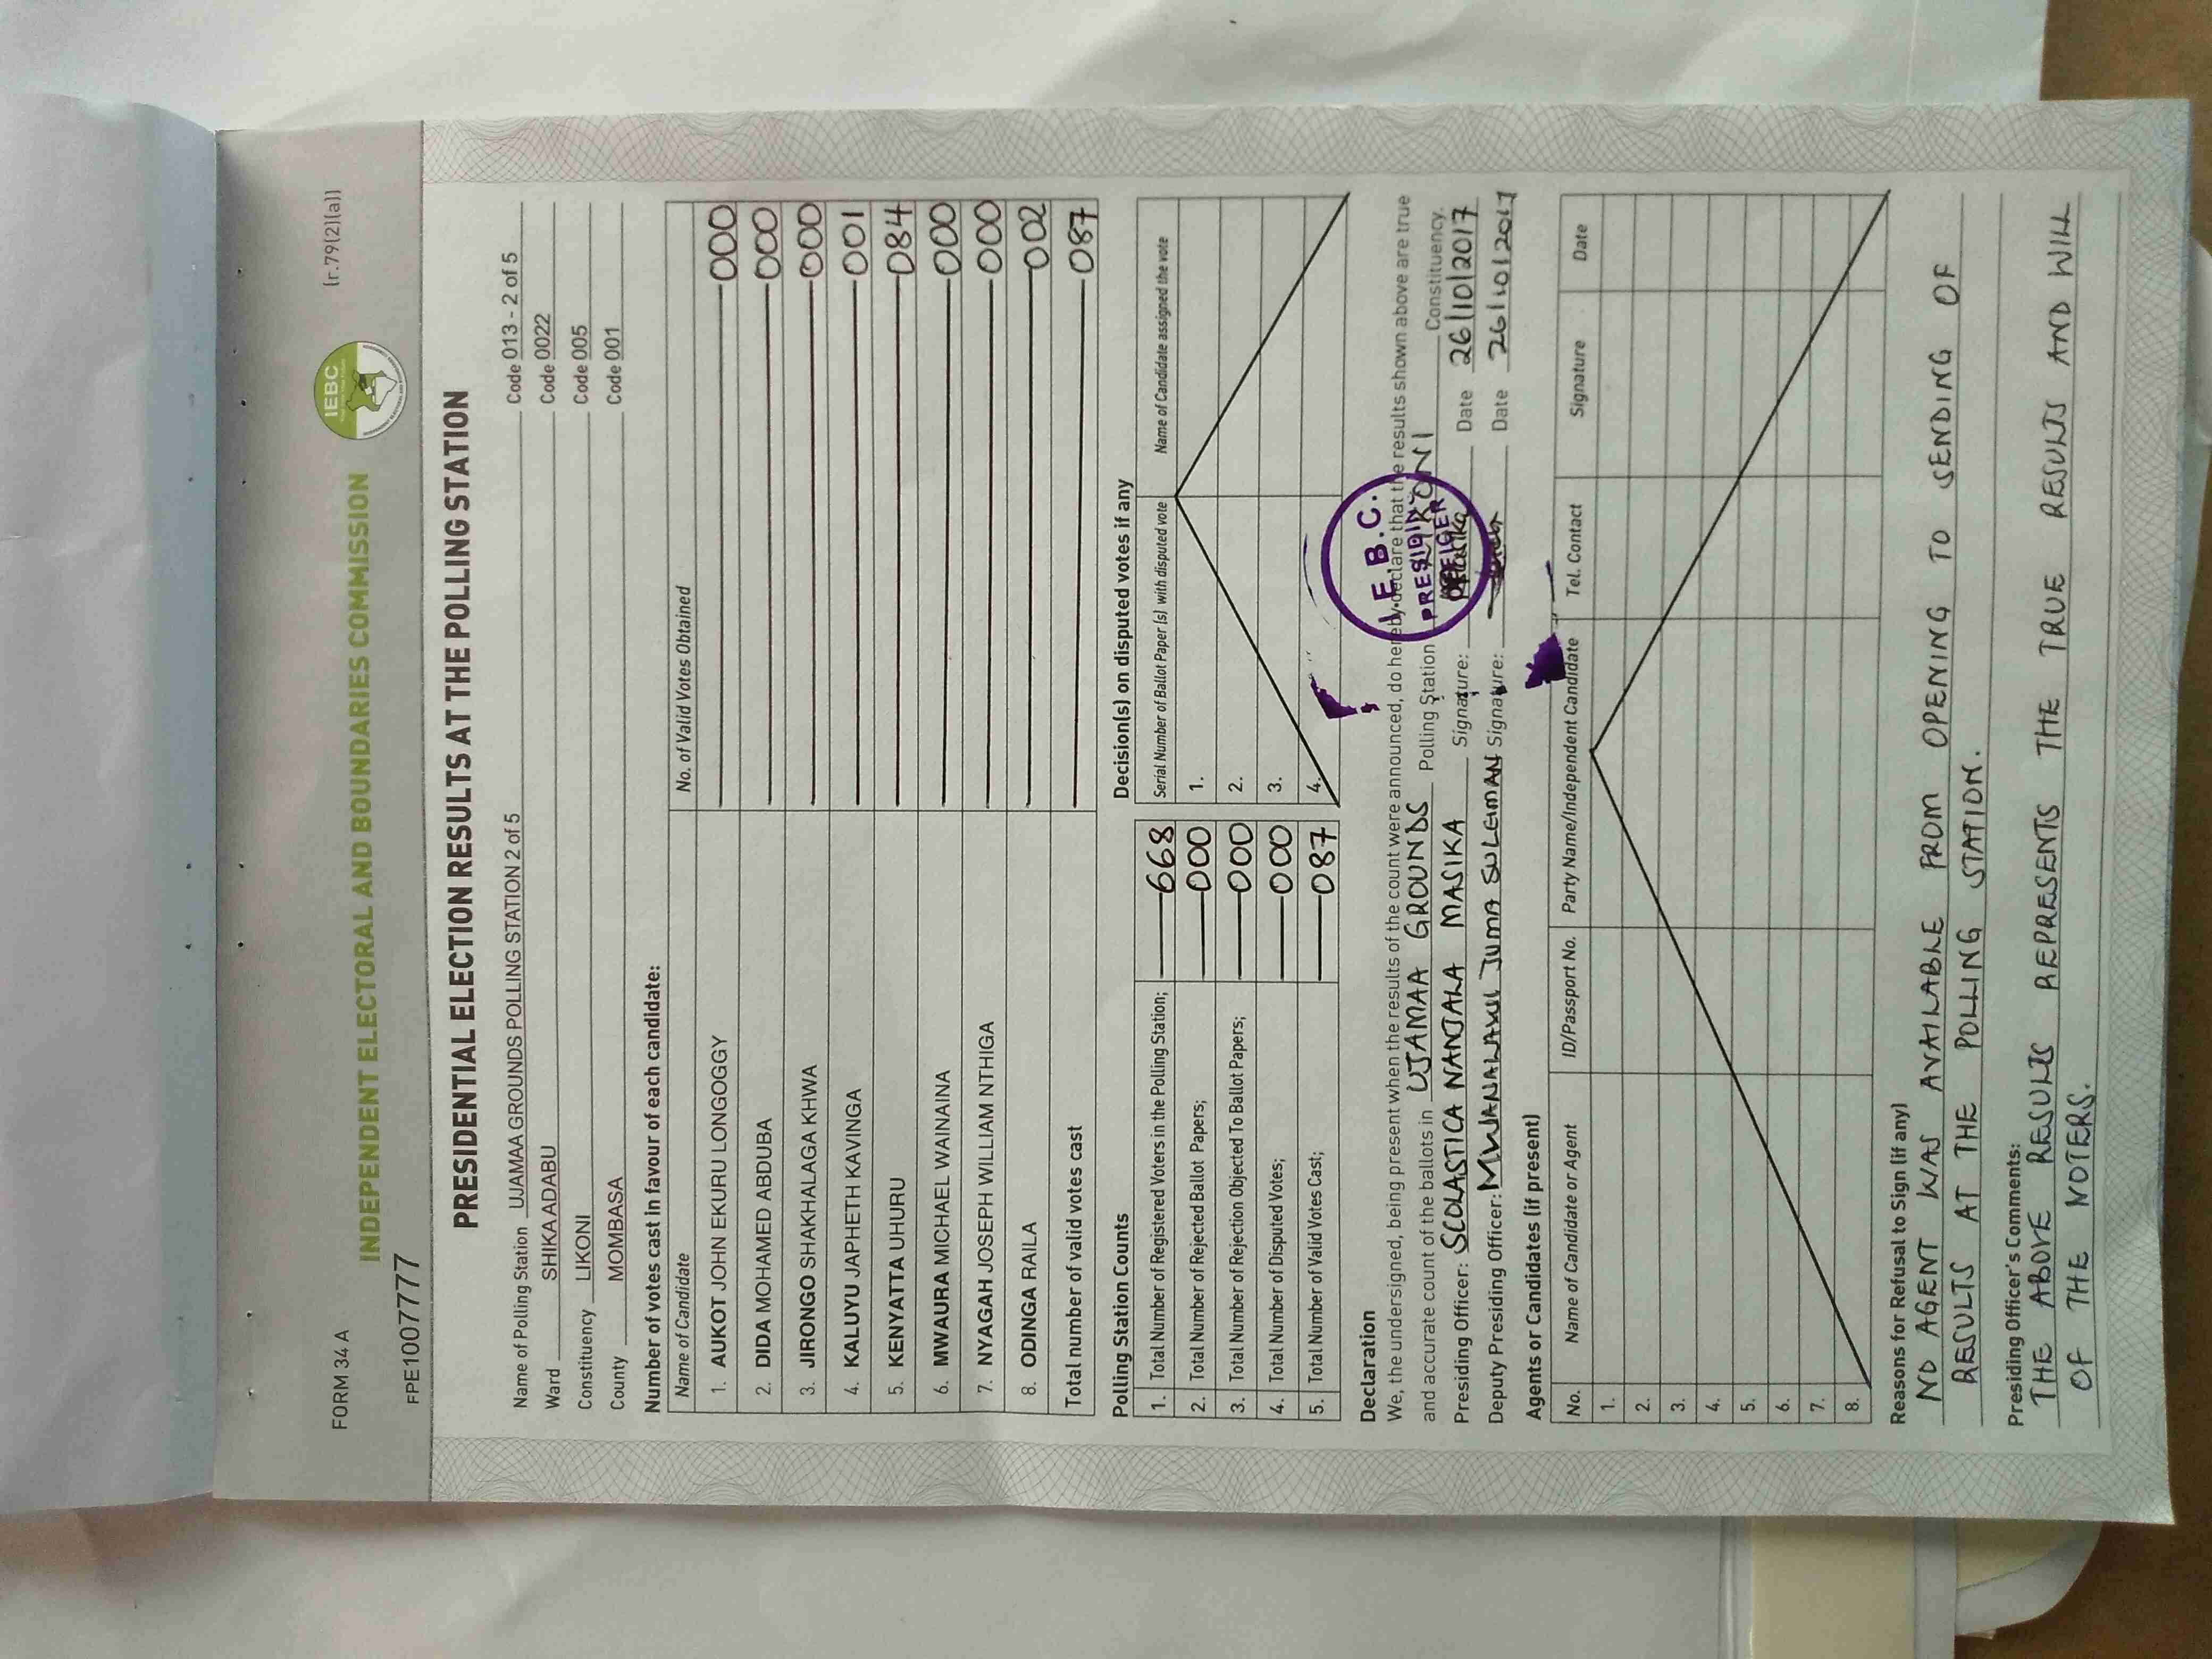 FORM 34 A
(r.79(2)(a))
IEBC
INDEPENDENT ELECTORAL AND BOUNDARIES COMMISSION
FPE1007777
PRESIDENTIAL ELECTION RESULTS AT THE POLLING STATION
Name of Polling Station UJAMAA GROUNDS POLLING STATION 2 of 5 Code 013 - 2 of 5
Ward SHIKA ADABU Code 0022
Constituency LIKONI Code 005
County MOMBASA Code 001
Number of votes cast in favour of each candidate:
Name of Candidate No. of Valid Votes Obtained
1. AUKOT JOHN EKURU LONGOGGY 000
2. DIDA MOHAMED ABDUBA 000
3. JIRONGO SHAKHALAGA KHWA 000
4. KALUYU JAPHETH KAVINGA 001
5. KENYATTA UHURU 084
6. MWAURA MICHAEL WAINAINA 000
7. NYAGAH JOSEPH WILLIAM NTHIGA 000
8. ODINGA RAILA 002
Total number of valid votes cast 087
Polling Station Counts
1. Total Number of Registered Voters in the Polling Station; 668
2. Total Number of Rejected Ballot Papers; 000
3. Total Number of Rejection Objected To Ballot Papers; 000
4. Total Number of Disputed Votes; 000
5. Total Number of Valid Votes Cast; 087
Decision(s) on disputed votes if any
Serial Number of Ballot Paper (s) with disputed vote Name of Candidate assigned the vote
1.
2.
3.
4.
Declaration
We, the undersigned, being present when the results of the count were announced, do hereby declare that the results shown above are true
and accurate count of the ballots in UJAMAA GROUNDS Polling Station LIKONI Constituency.
Presiding Officer: SCOLASTICA NANJALA MASIKA Signature: Date 26/10/2017
Deputy Presiding Officer: MWANAWAKUL JUMA SULEIMAN Signature: Date 26/10/2017
I.E.B.C.
PRESIDING
OFFICER
Agents or Candidates (if present)
No. Name of Candidate or Agent ID/Passport No. Party Name/Independent Candidate Tel. Contact Signature Date
1.
2.
3.
4.
5.
6.
7.
8.
Reasons for Refusal to Sign (if any)
NO AGENT WAS AVAILABLE FROM OPENING TO SENDING OF
RESULTS AT THE POLLING STATION.
Presiding Officer's Comments:
THE ABOVE RESULTS REPRESENTS THE TRUE RESULTS AND WILL
OF THE VOTERS.